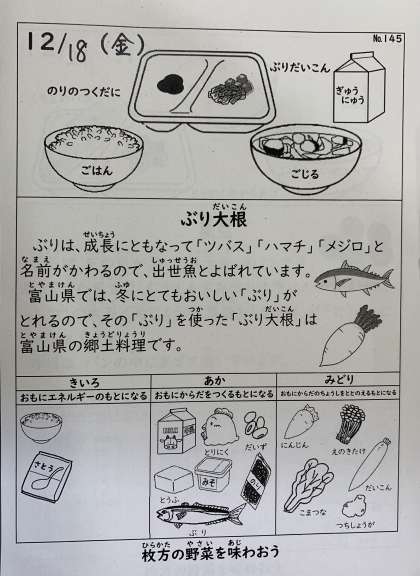 12/18(金)
No.145
ぶりだいこん
のりのつくだに
ぎゅう
にゅう
ごはん
ごじる
だいこん
ぶり大根
せいちょう
ぶりは、成長にともなって「ツバス」「ハマチ」「メジロ」と
なまえ しゅっせうお
名前がかわるので、出世魚とよばれています。
とやまけん ふゆ
富山県では、冬にとてもおいしい「ぶり」が
つか だいこん
とれるので、その「ぶり」を使った「ぶり大根」は
とやまけん きょうどりょうり
富山県の郷土料理です。
きいろ
おもにエネルギーのもとになる
さとう
あか
おもにからだをつくるもとになる
MILK
とりにく
だいず
とうふ
みそ
のり
ぶり
みどり
おもにからだのちょうしをととのえるもとになる
にんじん
えのきたけ
だいこん
こまつな
つちしょうが
ひらかた やさい あじ
枚方の野菜を味わおう